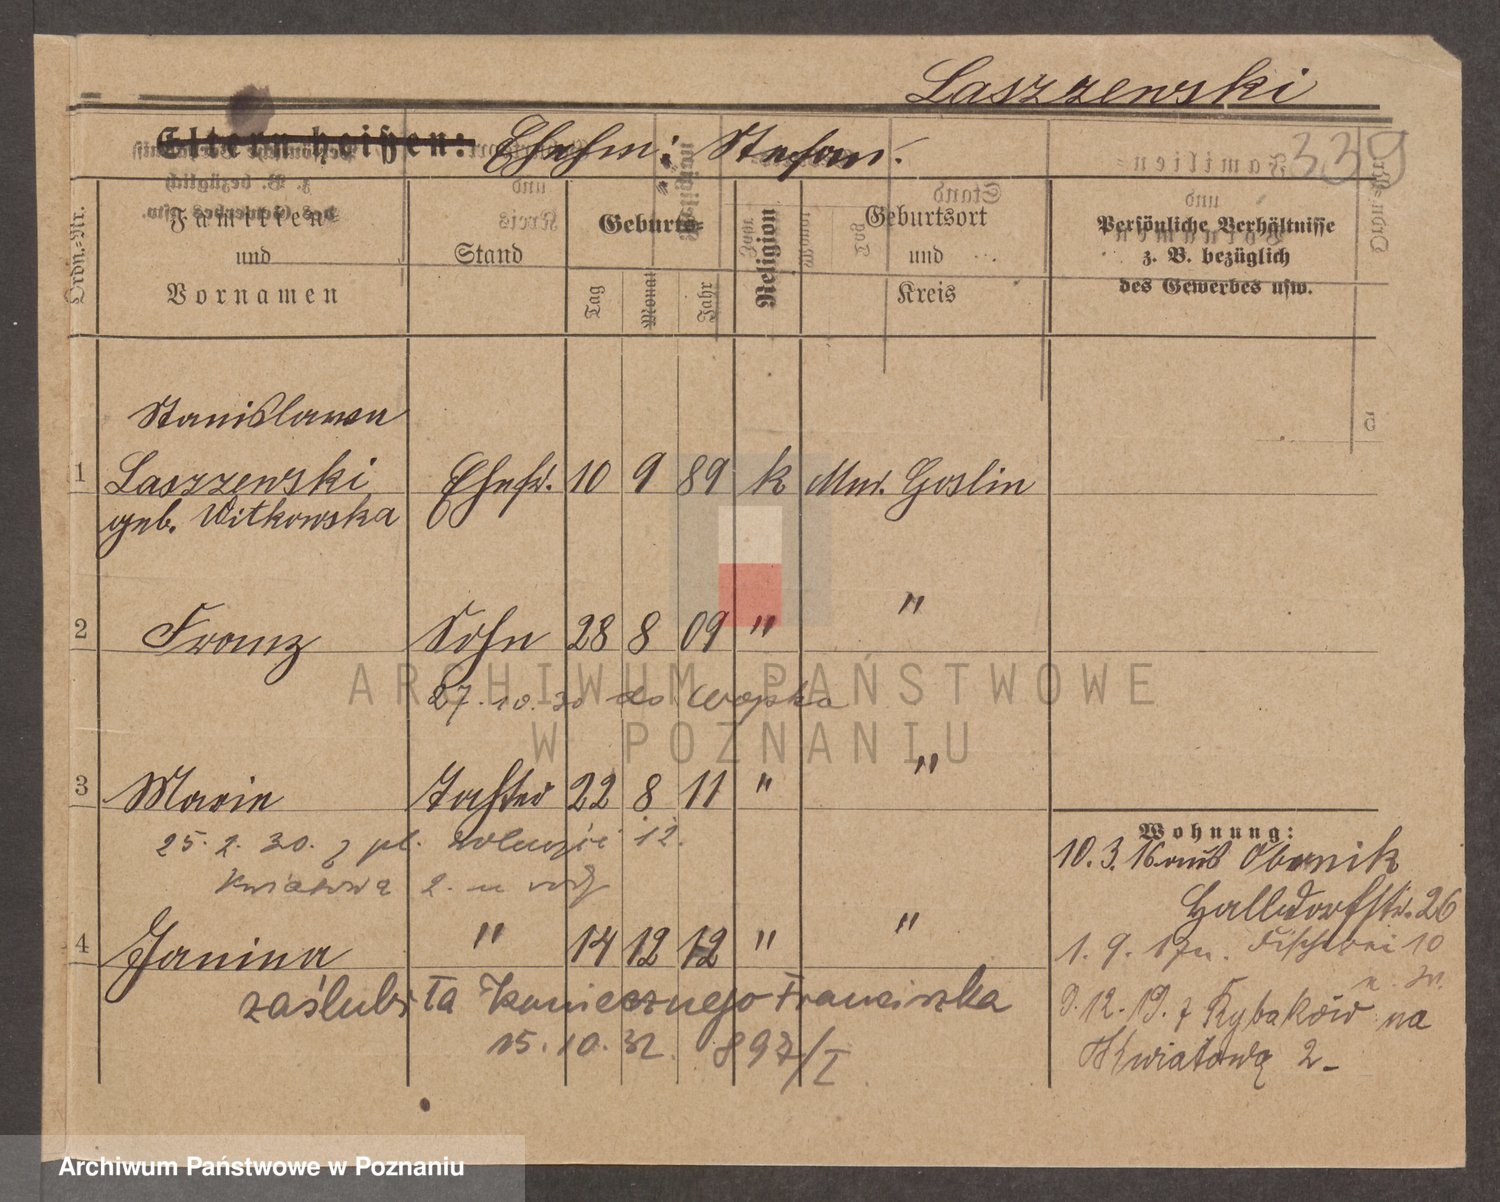 Laszzewski
339
Eltern heißen: Ehefm: Stefan.
Ordn.-Nr.
Familien
und
Vornamen
Stand
Geburts-
Tag
Monat
Jahr
Religion
Geburtsort
und
Kreis
Persönliche Verhältnisse
z. B. bezüglich
des Gewerbes usw.
Stanislawa
1 Laszzewski Ehefr. 10 9 89 k Mur. Goslin
geb. Witkowska
2 Franz Sohn 28 8 09 " "
27.10.30 do wojska
3 Marie Tochter 22 8 11 " "
25.2.30. z pl. 12.
Kwiatową 2.
4 Janina " 14 12 12 " "
zaślubiła Koniecznego Franciszka
15.10.32. 897/I
Wohnung:
10.3.16 aus Obornik
Halldorfstr. 26
1.9.17 n. Fischerei 10
9.12.19. z Rybaków na
Kwiatową 2-
ARCHIWUM PAŃSTWOWE
W POZNANIU
Archiwum Państwowe w Poznaniu